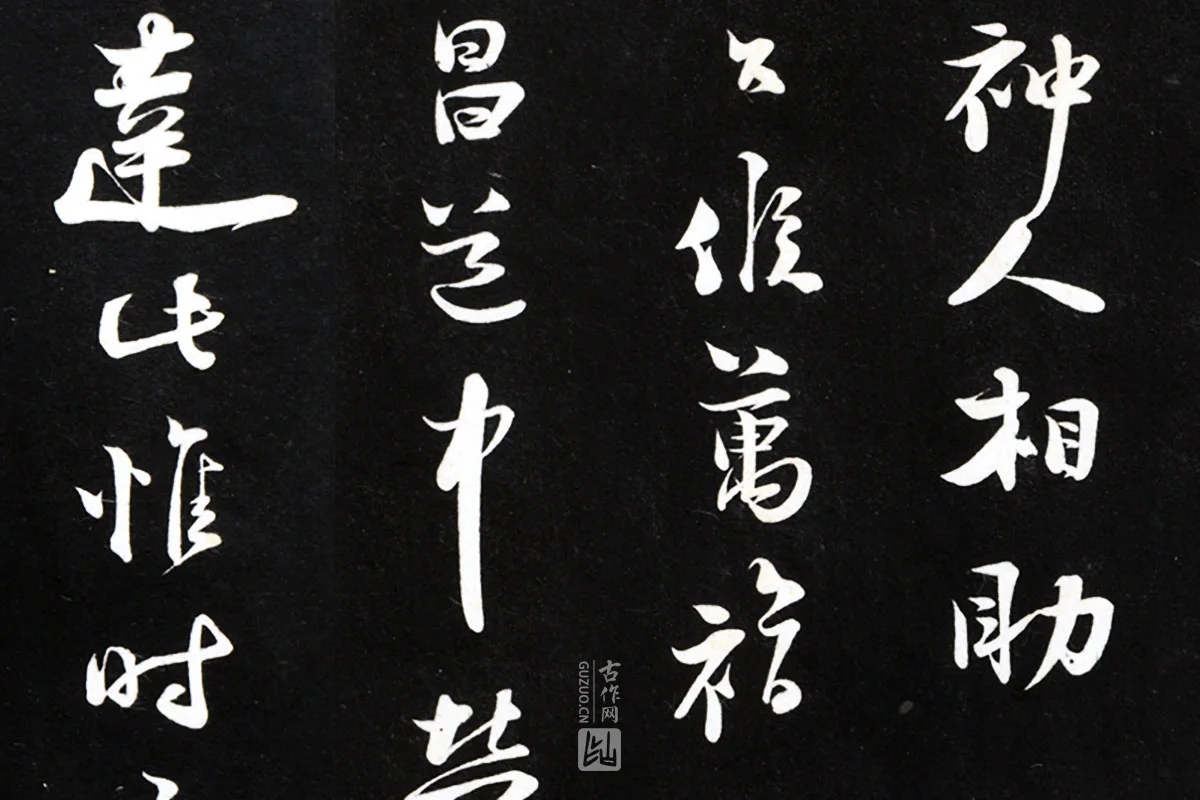 神人相助
公候萬福
昌 中
達此惟时
古作网
GUZUO.CN